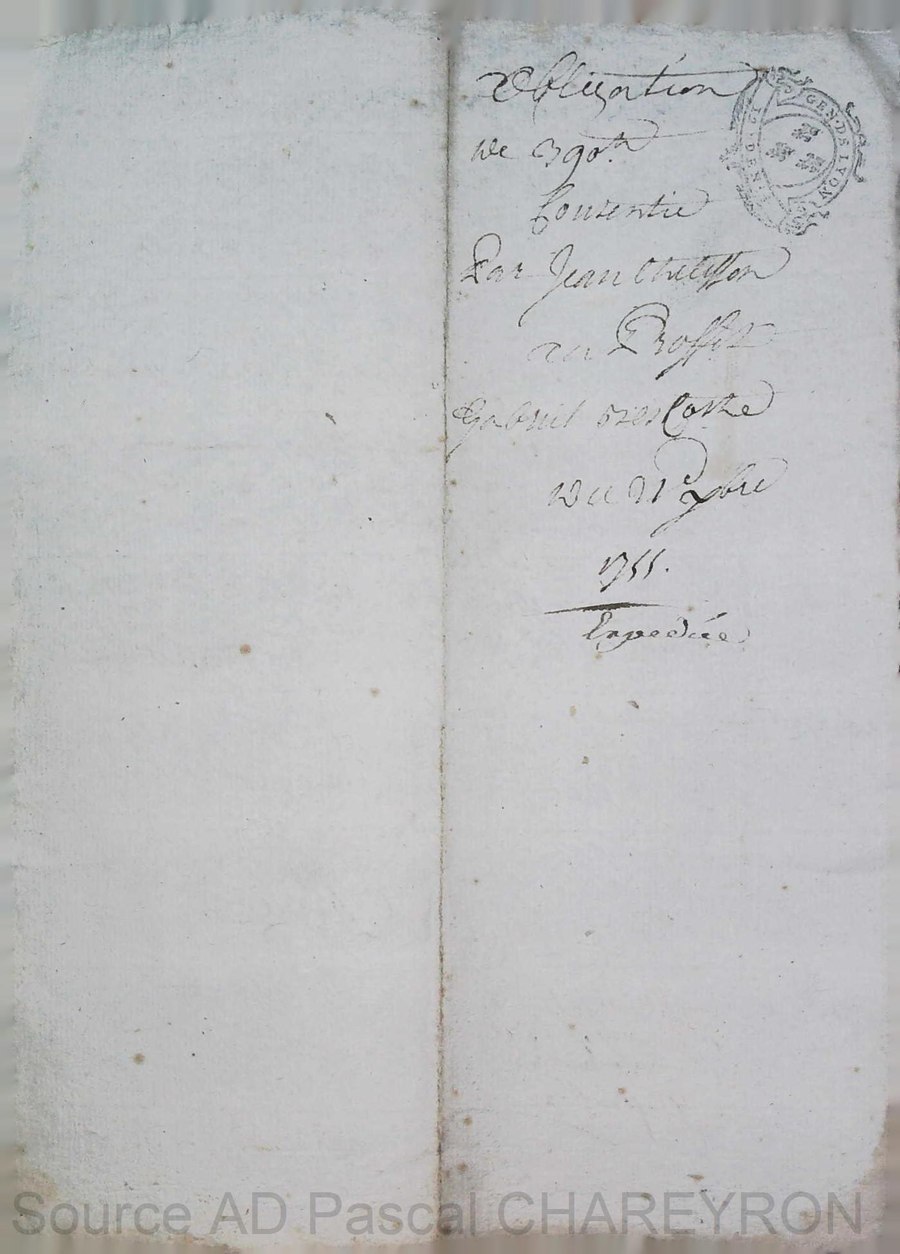 Obligation
De 390ᵗᵗ
Consentie
Par Jean Chalisson
au Proffit
Gabriel
Du 21ᵉ
1755.
Expediée
GEN·DE LYON
Source AD Pascal CHAREYRON